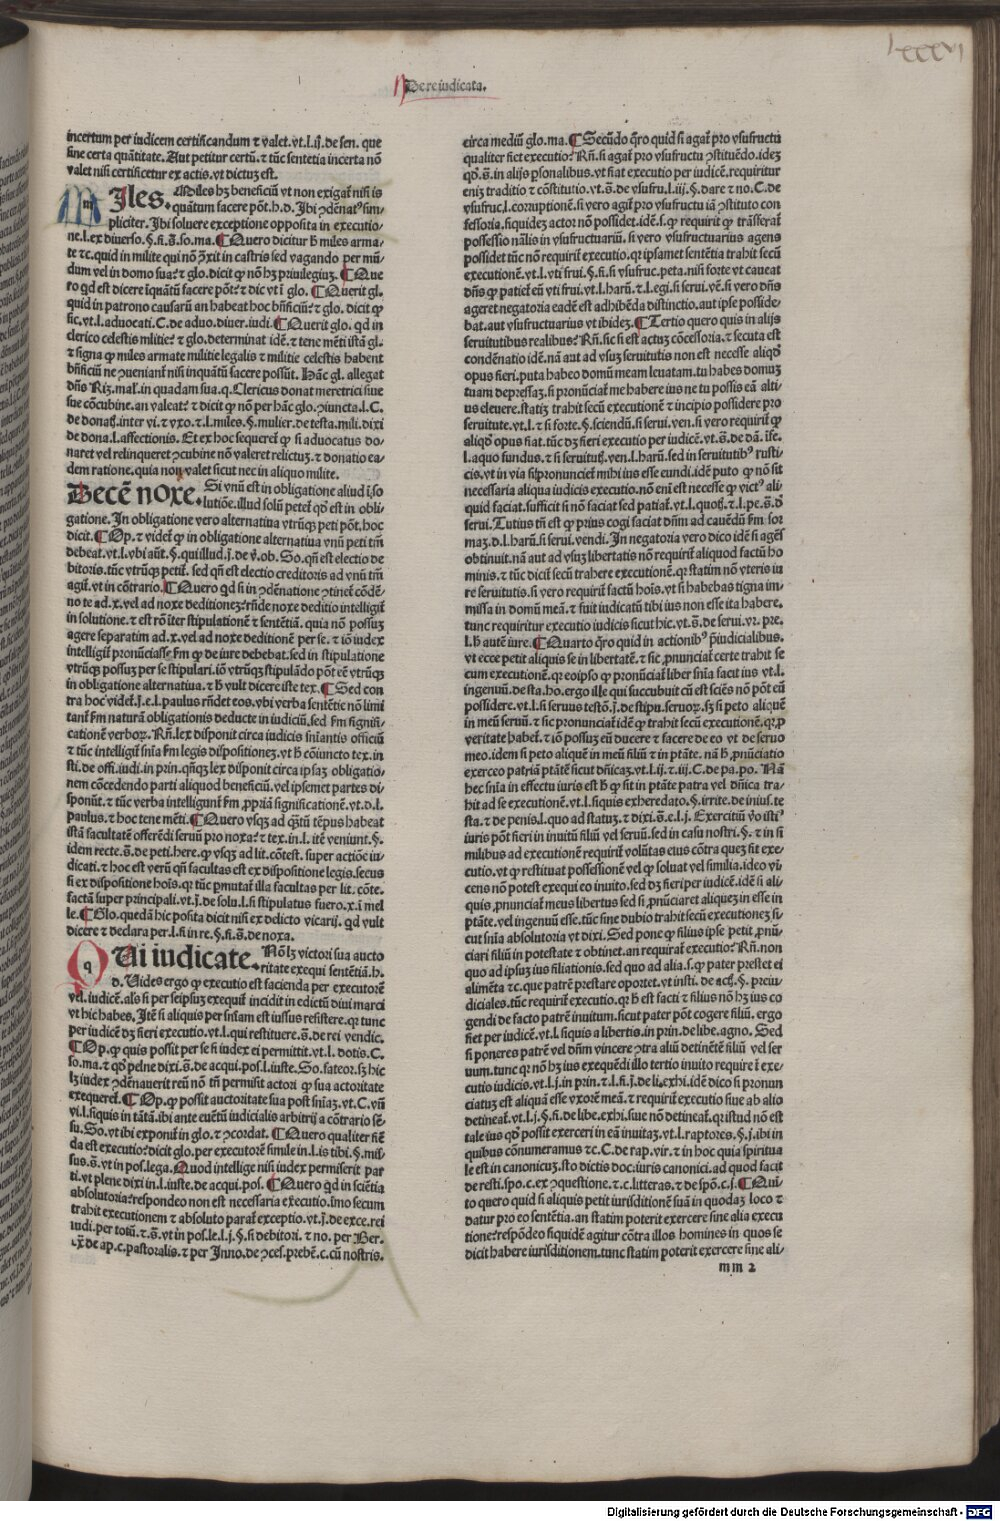 lxxxvi
De re iudicata.
incertum per iudicem certificandum ⁊ valet. vt. l. ij. de sen. que
sine certa quãtitate. Aut petitur certũ. ⁊ tũc sentẽtia incerta nõ
valet nisi certificetur ex actis. vt dictuʒ est.
MIles. Miles hʒ beneficiũ vt non exigat̃ nisi is
quãtum facere põt. h. d. Ibi ꝯdẽnat⁹ sim-
pliciter. Ibi soluere exceptione opposita in executio-
ne. l. ex diuerso. §. fi. s̃. so. ma. ¶ Quero dicitur h̃ miles arma-
te ⁊c. quid in milite qui nõ
dum vel in domo sua? ⁊ glo. dicit ꝙ nõ hʒ priuilegiuʒ. ¶ Que
ro qd est dicere ĩquãtũ facere põt? ⁊ dic vt ĩ glo. ¶ Querit gl.
quid in patrono causarũ an habeat hoc bñficiũ? ⁊ glo. dicit ꝙ
sic. vt. l. aduocati. C. de aduo. diuer. iudi. ¶ Querit glo. qd in
clerico celestis militie? ⁊ glo. determinat idẽ. ⁊ tene mẽti istã gl.
⁊ signa ꝙ miles armate militie legalis ⁊ militie celestis habent
bñficiũ ne ꝯueniant̃ nisi inquãtũ facere possũt. Hãc gl. allegat
dñs Riʒ. mal. in quadam sua. q. Clericus donat meretrici siue
sue cõcubine. an valeat? ⁊ dicit ꝙ nõ per hãc glo. ꝯiuncta. l. C.
de donaꝉ. inter vi. ⁊ vxo. ⁊ l. miles. §. mulier. de testa. mili. dixi
de dona. l. affectionis. Et ex hoc sequeret̃ ꝙ si aduocatus do-
naret vel relinqueret ꝯcubine nõ valeret relictuʒ. ⁊ donatio ea-
dem ratione. quia non valet sicut nec in aliquo milite.
Decẽ noxe. Si vnũ est in obligatione aliud ĩ so
lutiõe. illud solũ petet̃ qd est in obli-
gatione. In obligatione vero alternatiua vtrũqꝫ peti põt. hoc
dicit. ¶ Op. ⁊ videt̃ ꝙ in obligatione alternatiua vnũ peti tm̃
debeat. vt. l. vbi aut̃. §. qui illud. j̃. de ṽ. ob. So. qñ est electio de
bitoris. tũc vtrũqꝫ petit̃. sed qñ est electio creditoris ad vnũ tm̃
agit̃. vt in cõtrario. ¶ Quero qd si in ꝯdẽnatione ꝯtinet̃ cõdẽ-
no te ad. x. vel ad noxe deditioneʒ? rñde noxe deditio intelligit̃
in solutione. ⁊ est rõ ĩter stipulationẽ ⁊ sentẽtiã. quia nõ possuʒ
agere separatim ad. x. vel ad noxe deditionẽ per se. ⁊ iõ iudex
intelligit̃ pronũciasse fm̃ ꝙ de iure debebat. sed in stipulatione
vtrũqꝫ possuʒ per se stipulari. iõ vtrũqꝫ stipulãdo põt eẽ vtrũqꝫ
in obligatione alternatiua. ⁊ h̃ vult dicere iste tex. ¶ Sed con
tra hoc videt̃. j̃. e. l. paulus rñdet eos. vbi verba sentẽtie nõ limi
tant̃ fm̃ naturã obligationis deducte in iudiciũ. sed fm̃ signifi-
cationẽ verboꝝ. Rñ. lex disponit circa iudicis sñiantis officiũ
⁊ tũc intelligit̃ sñia fm̃ legis dispositioneʒ. vt h̃ cõiuncto tex. in-
sti. de offi. iudi. in prin. qñqꝫ lex disponit circa ipsaʒ obligatio-
nem cõcedendo parti aliquod beneficiũ. vel ipsemet partes di-
sponũt. ⁊ tũc verba intelligunt̃ fm̃ ꝓpriã significationẽ. vt. d. l.
paulus. ⁊ hoc tene mẽti. ¶ Quero vsqꝫ ad q̃tũ tẽpus habeat
istã facultatẽ offerẽdi seruũ pro noxa? ⁊ tex. in. l. itẽ veniunt. §.
idem recte. s̃. de peti. here. ꝙ vsqꝫ ad lit. cõtest. super actiõe iu-
dicati. ⁊ hoc est verũ qñ facultas est ex dispositione legis. secus
si ex dispositione hoĩs. qꝛ tũc ꝑmutat̃ illa facultas per lit. cõte.
factã super principali. vt. j̃. de solu. l. si stipulatus fuero. x. ĩ mel
le. ¶ Glo. quedã hic posita dicit nisi ex delicto vicarij. qd vult
dicere ⁊ declara per. l. fi in re. §. fi. s̃. de noxa.
QUi iudicate. Nõ lʒ victori sua aucto
ritate exequi sentẽtiã. h.
d. Vides ergo ꝙ executio est facienda per executorẽ
vel. iudicẽ. als̃ si per seipsuʒ exequit̃ incidit in edictũ diui marci
vt hic habes. Itẽ si aliquis per sñiam est iussus resistere. qꝛ tunc
per iudicẽ dʒ fieri executio. vt. l. qui restituere. s̃. de rei vendic.
¶ Op. ꝙ quis possit per se si iudex ei permittit. vt. l. dotis. C.
so. ma. ⁊ qd̃ plene dixi. s̃. de acqui. pos. l. iuste. So. fateor. sʒ hic
lʒ iudex ꝯdẽnauerit reũ nõ tñ permisit actori ꝙ sua actoritate
exequeret̃. ¶ Op. ꝙ possit auctoritate sua post sñiaʒ. vt. C. vñ
vi. l. siquis in tãtã. ibi ante euẽtũ iudicialis arbitrij a cõtrario sẽ-
su. So. vt ibi exponit̃ in glo. ⁊ ꝯcordat. ¶ Quero qualiter fiẽ
da est executio? dicit glo. per executorẽ simile in. l. is tibi. §. mis-
sus. s̃. vt in pos. lega. Quod intellige nisi iudex permiserit par
ti. vt plene dixi in. l. iuste. de acqui. pos. ¶ Quero qd in sciẽtia
absolutoria? respondeo non est necessaria executio. ĩmo secum
trahit executionem ⁊ absoluto parat̃ exceptio. vt. j̃. de exce. rei
iudi. per totũ. ⁊ s̃. vt in pos. le. l. j. §. si debitori. ⁊ no. per Ber.
ex̃ de ap. c. pastoralis. ⁊ per Inno. de ꝯces. prebẽ. c. cũ nostris.
circa mediũ glo. ma. ¶ Secũdo q̃ro quid si agat̃ pro vsufructu
qualiter fiet executio? Rñ. si agat̃ pro vsufructu ꝯstituẽdo. ideʒ
qd̃. s̃. in alijs ꝑsonalibus. vt fiat executio per iudicẽ. requiritur
eniʒ traditio ⁊ cõstitutio. vt. s̃. de vsufru. l. iij. §. dare ⁊ no. C. de
vsufruc. l. corruptionẽ. si vero agit̃ pro vsufructu iã ꝯstituto con
fessoria. siquideʒ actor nõ possidet. idẽ. s. ꝙ requirit̃ ꝙ trãsferat̃
possessio nãlis in vsufructuariũ. si vero vsufructuarius agens
possidet tũc nõ requirit̃ executio. qꝛ ipsamet sentẽtia trahit secũ
executionẽ. vt. l. vti frui. §. fi. si vsufruc. peta. nisi forte vt caueat
dñs ꝙ patiet̃ eũ vti frui. vt. l. harũ. ⁊. l. egi. si serui. vẽ. si vero dñs
ageret negatoria eadẽ est adhibẽda distinctio. aut ipse posside-
bat. aut vsufructuarius vt ibideʒ. ¶ Tertio quero quis in alijs
seruitutibus realibus? Rñ. sic si est actuʒ cõcessoria. ⁊ secuta est
condẽnatio idẽ. nã aut ad vsuʒ seruitutis non est necesse aliqd̃
opus fieri. puta habeo domũ meam leuatam. tu habes domuʒ
tuam depressaʒ. si pronũciat̃ me habere ius ne tu possis eã alti-
us eleuere. statiʒ trahit secũ executionẽ ⁊ incipio possidere pro
seruitute. vt. l. ⁊ si forte. §. sciendũ. si serui. ven. si vero requirit̃ ꝙ
aliqd̃ opus fiat. tũc dʒ fieri executio per iudicẽ. vt. s̃. de dã. ĩfe.
l. aquo fundus. ⁊ si seruituꝉ. ven. l. harũ. sed in seruitutib⁹ rusti-
cis. vt in via si ꝓnunciet̃ mihi ius esse eundi. idẽ puto ꝙ nõ sit
necessaria aliqua iudicis executio. nõ enĩ est necesse ꝙ vict⁹ ali-
quid faciat. sufficit si nõ faciat sed patiat̃. vt. l. quotĩ. ⁊. l. pe. s̃. d̃
serui. Tutius tñ est ꝙ prius cogi faciat dñm ad cauẽdũ fm̃ for
maʒ. d. l. harũ. si serui. vendi. In negatoria vero dico idẽ si agẽs
obtinuit. nã aut ad vsuʒ libertatis nõ requirit̃ aliquod factũ ho
minis. ⁊ tũc dicit̃ secũ trahere executionẽ. qꝛ statim nõ vteris iu
re seruitutis. si vero requirit̃ factũ hoĩs. vt si habebas tigna im-
missa in domũ meã. ⁊ fuit iudicatũ tibi ius non esse ita habere.
tunc requiritur executio iudicis sicut hic. vt. s̃. de serui. vr. pre.
l. h̃ autẽ iure. ¶ Quarto q̃ro quid in actionib⁹ p̃iudicialibus.
vt ecce petit aliquis se in libertatẽ. ⁊ sic ꝓnunciat̃ certe trahit se
cum executionẽ. qꝛ eoipso ꝙ pronũciat̃ liber sñia facit ius vt. l.
ingenuũ. de sta. ho. ergo ille qui succubuit cũ est sciẽs nõ põt eũ
possidere. vt. l. si seruus testõ. j̃. de stipu. seruoꝝ. sʒ si peto aliquẽ
in meũ seruũ. ⁊ sic pronunciat̃ idẽ ꝙ trahit secũ executionẽ. qꝛ ꝓ
veritate habet̃. ⁊ iõ possuʒ eũ ducere ⁊ facere de eo vt de seruo
meo. idem si peto aliquẽ in meũ filiũ ⁊ in ptãte. nã h̃ ꝓnũciatio
exerceo patriã ptãtẽ sicut dñicaʒ. vt. l. ij. ⁊ iij. C. de pa. po. Nã
hec sñia in effectu iuris est h̃ ꝙ sit in ptãte patra vel dñica tra-
hit ad se executionẽ. vt. l. siquis exheredato. §. irrite. de iniuꝯ. te
sta. ⁊ de penis. l. quo ad statuʒ. ⁊ dixi. s̃. e. l. j. Exercitiũ v̊o isti⁹
iuris põt fieri in inuitũ filiũ vel seruũ. sed in casu nostri. §. ⁊ in si
milibus ad executionẽ requirit̃ volũtas eius cõtra queʒ fit exe-
cutio. vt ꝙ restituat possessionẽ vel ꝙ soluat vel similia. ideo vĩ-
cens nõ potest exequi eo inuito. sed dʒ fieri per iudicẽ. idẽ si ali
quis ꝓnunciat̃ meus libertus sed si ꝓnũciaret aliqueʒ in esse in
ptãte. vel ingenuũ esse. tũc sine dubio trahit secũ executioneʒ si-
cut sñia absolutoria vt dixi. Sed pone ꝙ filius ipse petit ꝓnũ-
ciari filiũ in potestate ⁊ obtinet. an requirat̃ executio? Rñ. non
quo ad ipsuʒ ius filiationis. sed quo ad alia. s. ꝙ pater prestet ei
alimẽta ⁊c. que patrẽ prestare oportet. vt insti. de actĩ. §. preiu-
diciales. tũc requirit̃ executio. qꝛ h̃ est facti ⁊ filius nõ hʒ ius co
gendi de facto patrẽ inuitum. sicut pater põt cogere filiũ. ergo
fiet per iudicẽ. vt. l. siquis a libertis. in prin. de libe. agno. Sed
si poneres patrẽ vel dñm vincere ꝯtra aliũ detinẽtẽ filiũ vel ser
uum. tunc qꝛ nõ hʒ ius exequẽdi illo tertio inuito require ĩ exe-
cutio iudicis. vt. l. j. in prin. ⁊. l. fi. j̃. de li. exhi. idẽ dico si pronun
ciatuʒ est aliquã esse vxorẽ meã. ⁊ requirit̃ executio siue ab alio
detineat̃. vt. l. j. §. fi. de libe. exhi. siue nõ detineat̃. qꝛ istud nõ est
tale ius qd̃ possit exerceri in eã inuitaʒ. vt. l. raptores. §. j. ibi in
quibus cõnumeramus ⁊c. C. de rap. vir. ⁊ in hoc quia spiritua
le est in canonicuʒ. sto dictis doc. iuris canonici. ad quod facit
de resti. spo. c. ex ꝯquestione. ⁊. c. litteras. ⁊ de spõ. c. j. ¶ Quĩ-
to quero quid si aliquis petit iurisditionẽ suã in quodaʒ loco ⁊
datur pro eo sentẽtia. an statim poterit exercere sine alia execu
tione? respõdeo siquidẽ agitur cõtra illos homines in quos se
dicit habere iurisditionem. tunc statim poterit exercere sine ali-
mm 2
Digitalisierung gefördert durch die Deutsche Forschungsgemeinschaft - DFG